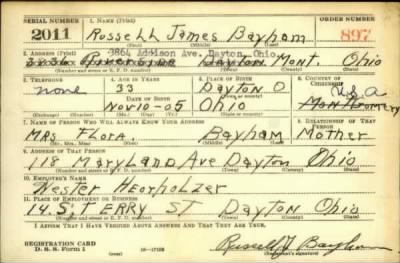 SERIAL NUMBER 1. NAME (Print) ORDER NUMBER
2011 Russell James Bayham 897
(First) (Middle) (Last)
3864 Addison Ave. Dayton, Ohio.
2. ADDRESS (Print)
Riverside Dayton Mont. Ohio
(Number and street or R. F. D. number) (Town) (County) (State)
3. TELEPHONE 4. AGE IN YEARS 5. PLACE OF BIRTH 6. COUNTRY OF CITIZENSHIP
none 33 Dayton O U S A
DATE OF BIRTH Montgomery
Nov 10-05 Ohio
(Mo.) (Day) (Yr.)
7. NAME OF PERSON WHO WILL ALWAYS KNOW YOUR ADDRESS 8. RELATIONSHIP OF THAT PERSON
Mrs Flora. Bayham Mother
(Mr., Mrs., Miss) (First) (Middle) (Last)
9. ADDRESS OF THAT PERSON
118 Maryland Ave Dayton Ohio
(Number and street or R. F. D. number) (Town) (County) (State)
10. EMPLOYER'S NAME
Hester
11. PLACE OF EMPLOYMENT OR BUSINESS
14. S. TERRY ST Dayton Ohio
(Number and street or R. F. D. number) (Town) (County) (State)
I AFFIRM THAT I HAVE VERIFIED ABOVE ANSWERS AND THAT THEY ARE TRUE.
REGISTRATION CARD
D. S. S. Form 1 16-17105 Russell J Bayham
(Registrant's signature)